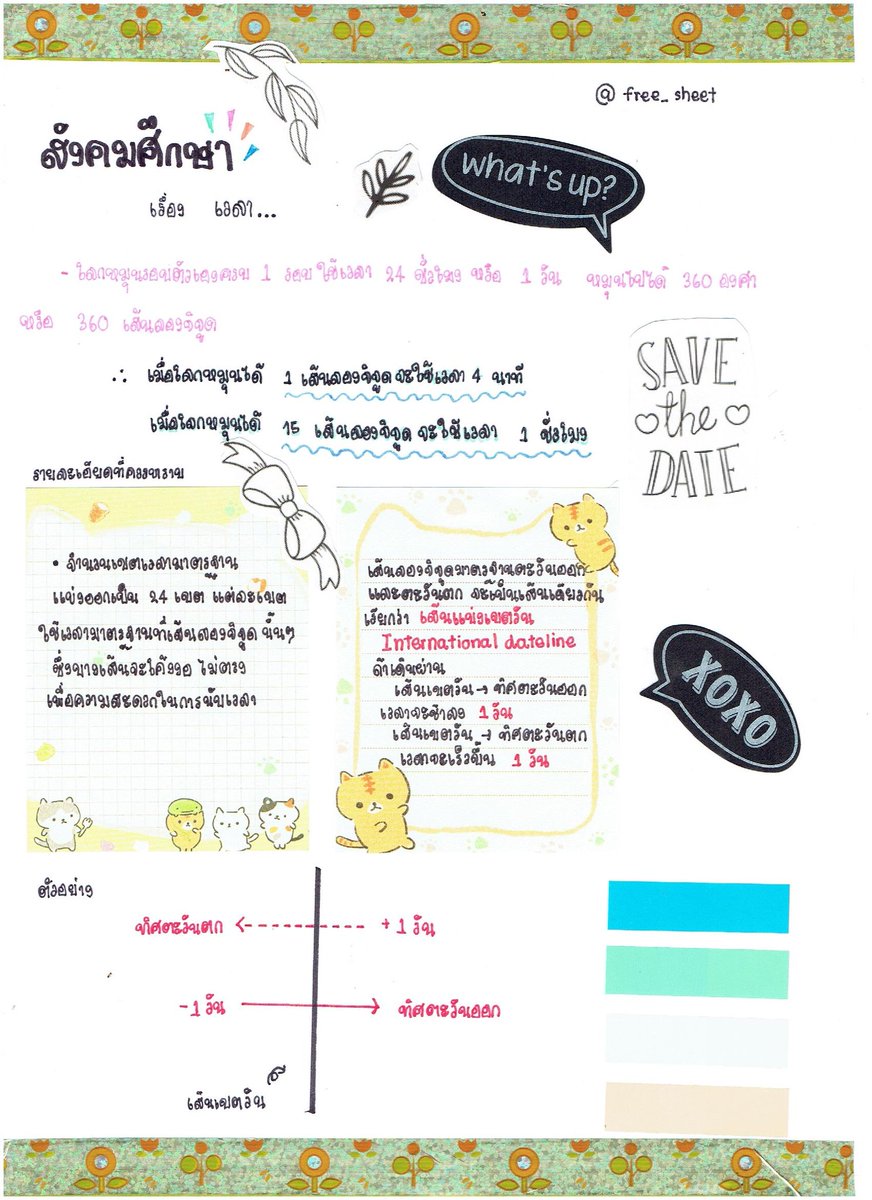 @ free_sheet
สังคมศึกษา
what's up?
เรื่อง เวลา...
- โลกหมุนรอบตัวเองครบ 1 รอบ ใช้เวลา 24 ชั่วโมง หรือ 1 วัน หมุนไปได้ 360 องศา
หรือ 360 เส้นลองจิจูด
∴ เมื่อโลกหมุนได้ 1 เส้นลองจิจูด จะใช้เวลา 4 นาที
เมื่อโลกหมุนได้ 15 เส้นลองจิจูด จะใช้เวลา 1 ชั่วโมง
SAVE
the
DATE
รายละเอียดที่ควรทราบ
• จำนวนเขตเวลามาตรฐาน
แบ่งออกเป็น 24 เขต แต่ละเขต
ใช้เวลามาตรฐานที่เส้นลองจิจูด นั้นๆ
ซึ่งบางเส้นจะโค้งงอ ไม่ตรง
เพื่อความสะดวกในการนับเวลา
เส้นลองจิจูดมาตรฐานตะวันออก
และตะวันตก จะเป็นเส้นเดียวกัน
เรียกว่า เส้นแบ่งเขตวัน
International dateline
ถ้าเดินผ่าน
เส้นเขตวัน → ทิศตะวันออก
เวลาจะช้าลง 1 วัน
เส้นเขตวัน → ทิศตะวันตก
เวลาจะเร็วขึ้น 1 วัน
XOXO
ตัวอย่าง
ทิศตะวันตก + 1 วัน
- 1 วัน ทิศตะวันออก
เส้นเขตวัน